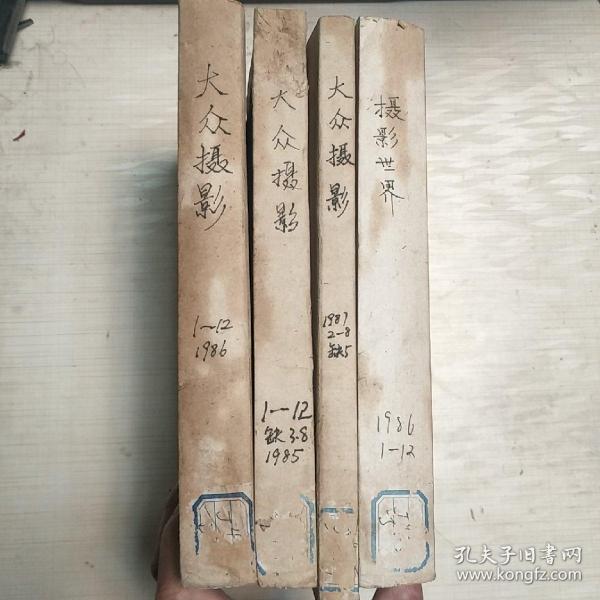 大众摄影
1~12
1986
大众摄影
1—12
缺3.8
1985
大众摄影
1987
2-8
缺5
摄影世界
1986
1-12
孔夫子旧書网
www.kongfz.com